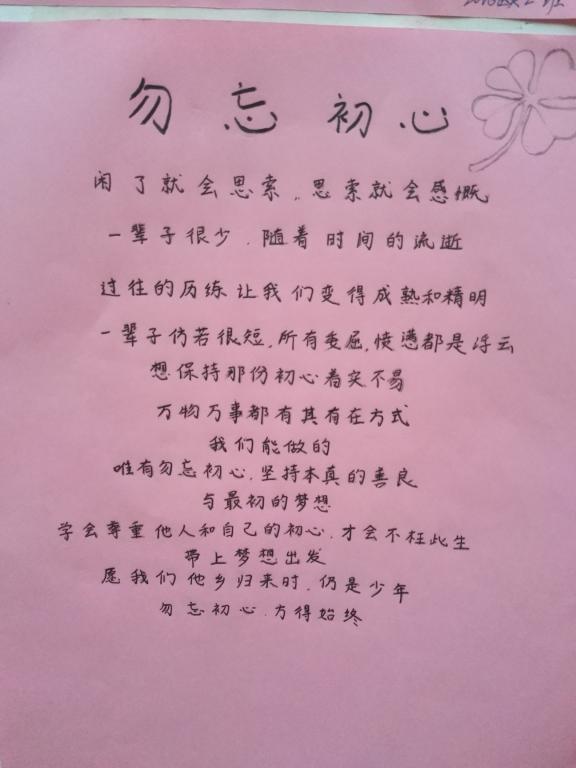 勿忘初心
闲了就会思索,思索就会感慨
一辈子很少.随着时间的流逝
过往的历练让我们变得成熟和精明
一辈子仿若很短,所有委屈,愤懑都是浮云
想保持那份初心着实不易
万物万事都有其有在方式
我们能做的
唯有勿忘初心.坚持本真的善良
与最初的梦想
学会尊重他人和自己的初心.才会不枉此生
带上梦想出发
愿我们他乡归来时,仍是少年
勿忘初心.方得始终